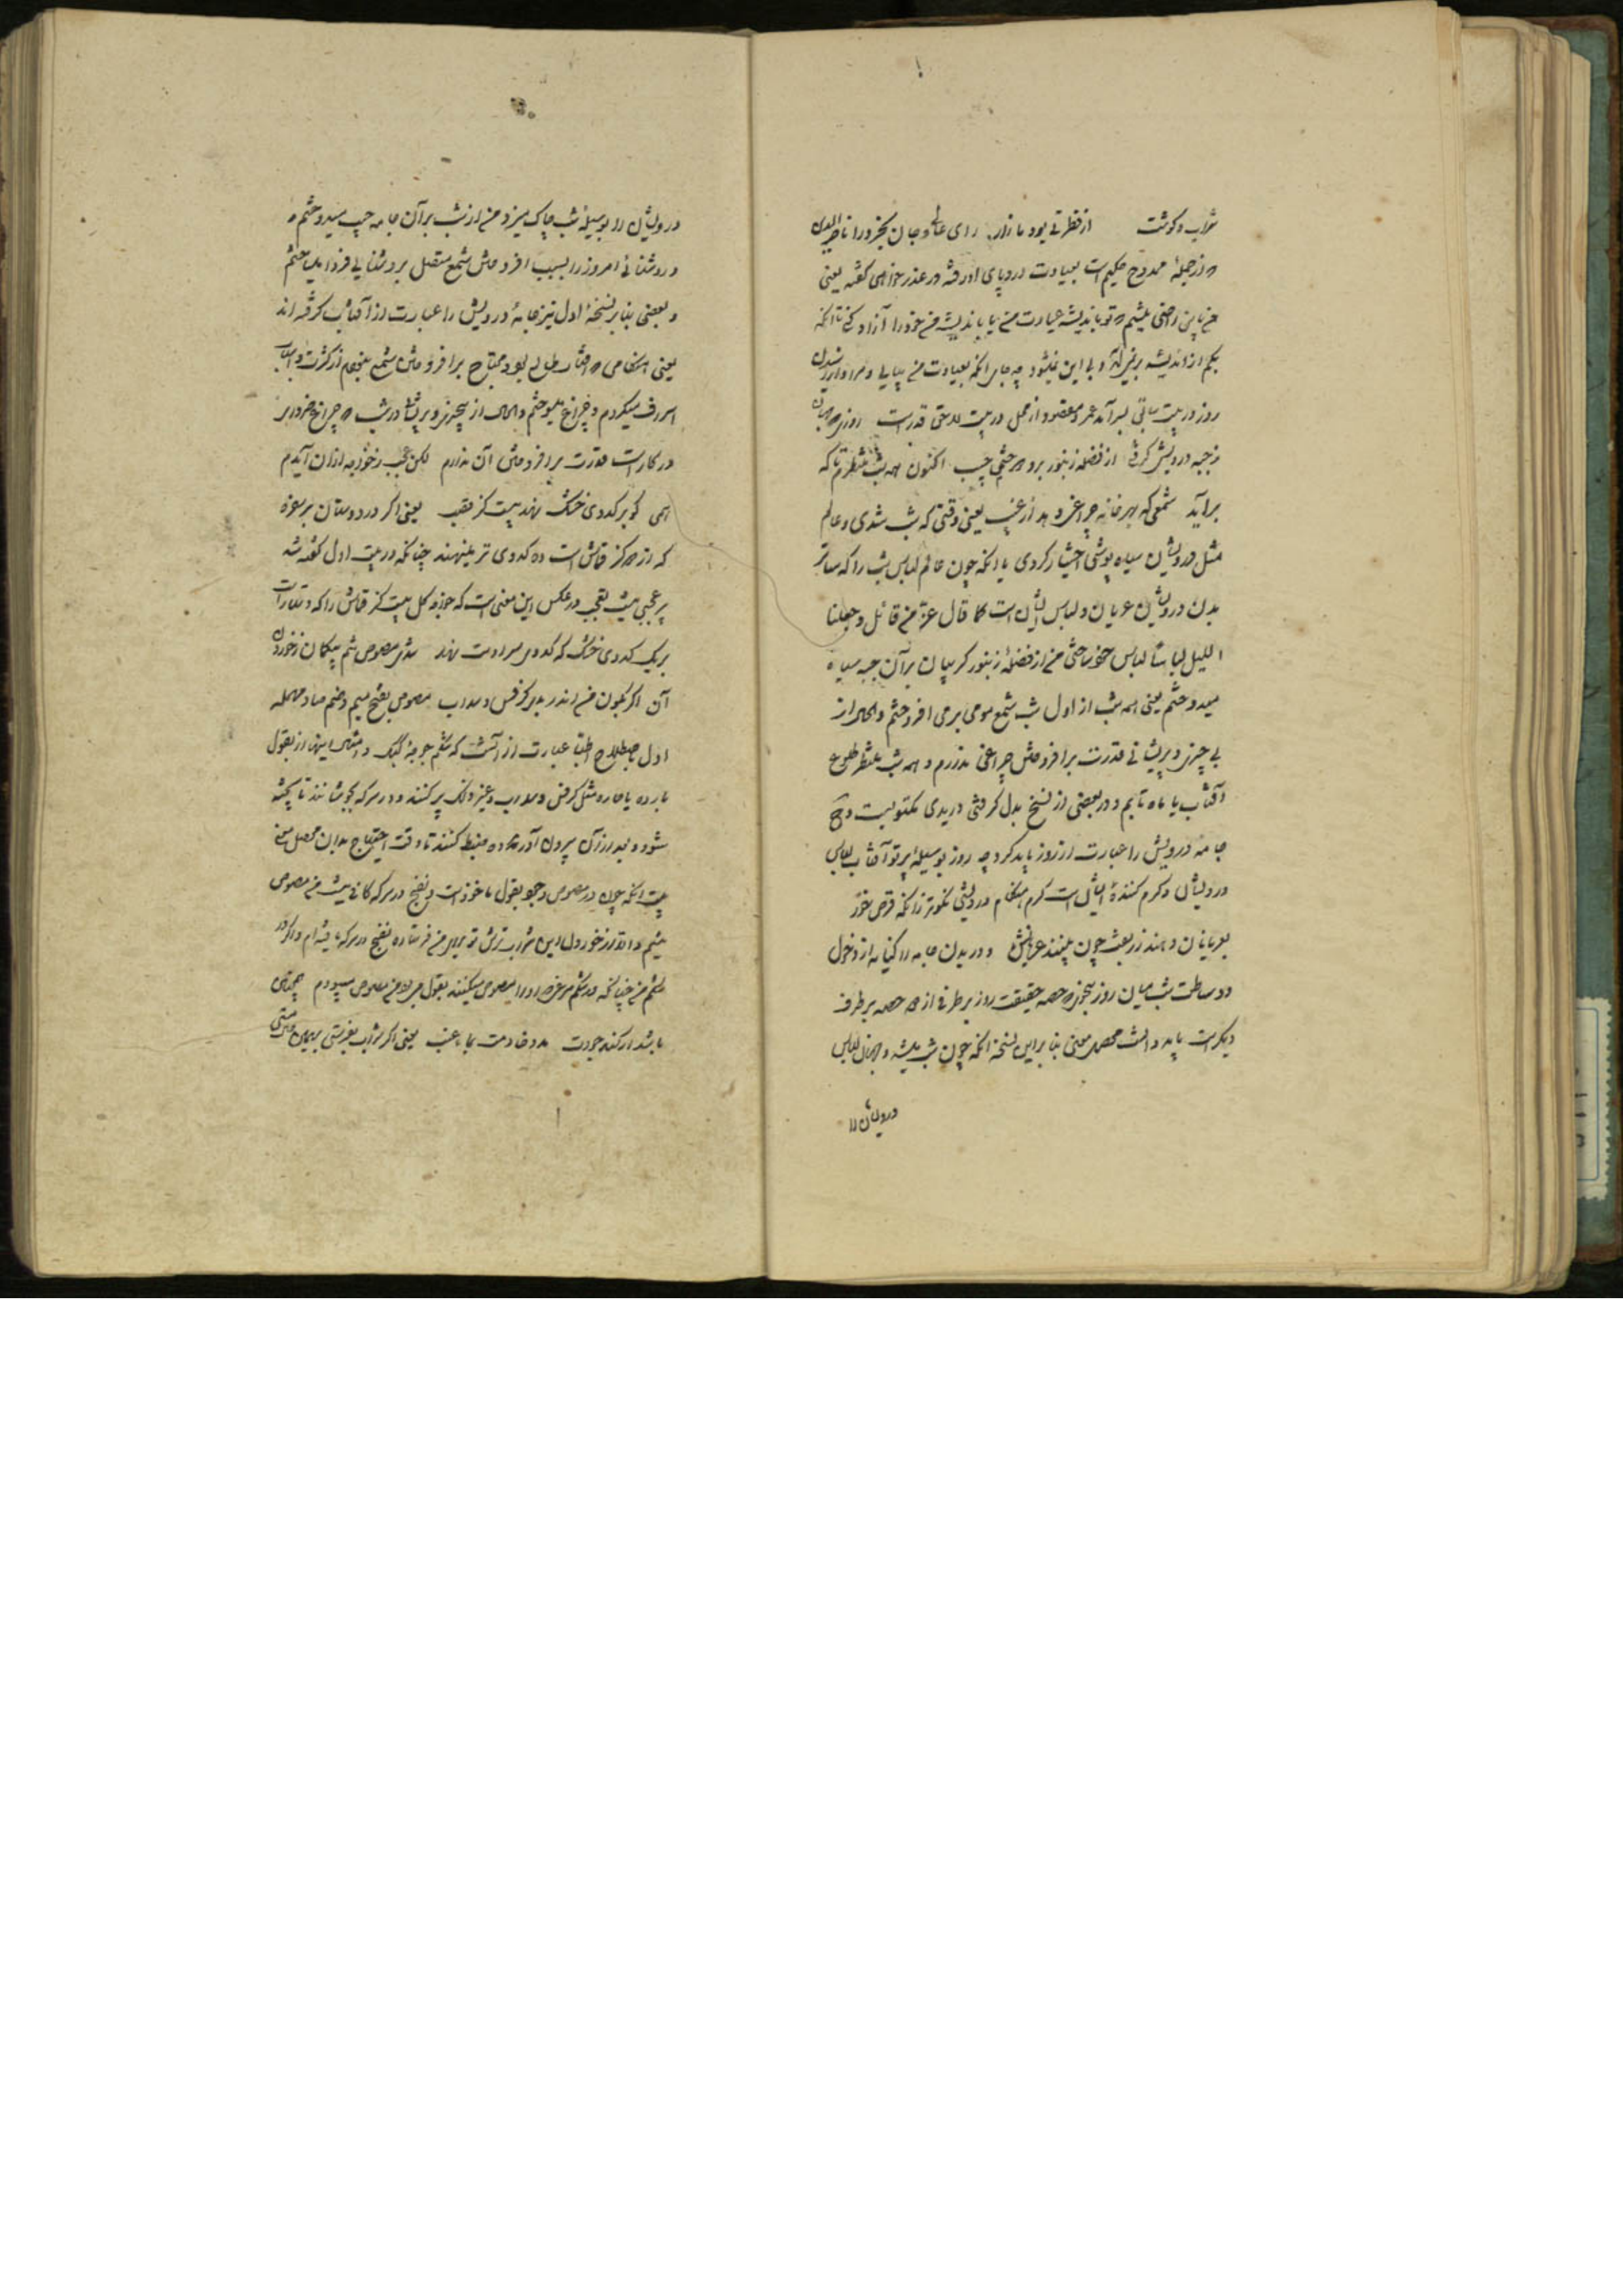 شراب و گوشت از فطرتی بود ما زار رای عالی و جان بخرد را ناظر
از جمله ممدوح حکیم است بعیادت درد پای او رفته در عذر خواهی گفته یعنی
من باین راضی نیستم که تو باندیشه عیادت من یا باندیشه من خود را آزاد کنی تا آنکه
بکم از اندیشه و بی این نمیشود چه جای آنکه بعیادت من بیایی و مرا
روز در بیت ثانی بسر آمد عمر و مقصود از حمل در بیت لاحق قدر است روزی
ز جبه درویش کرفتی از فضله زنبور برو چسب اکنون همه شب منتظرم تا که
برآید شمعی که بهر خانه چراغی دهد از غیب یعنی وقتی که شب شدی و عالم
مثل درویشان سیاه پوشی اختیار کردی یا آنکه چون عالم لباس شب را که ساتر
بدن درویشان عریان و لباس ایشان است کما قال عز من قائل وجعلنا
اللیل لباسا لباس خود ساختی من از فضله زنبور گریبان بر آن جبه سیاه
میدوختم یعنی همه شب از اول شب شمع مومی برمی افروختم و الحال از
بی چیزی و پریشانی قدرت برافروختن چراغی ندارم و همه شب منتظر طلوع
آفتاب یا ماه تابم و در بعضی از نسخ بدل کرفتی دریدی مکتوبست
جامه درویش را عبارت از روز باید کرد چه روز بوسیله پرتو آفتاب لباس
درویشان و گرم کننده ایشان است گرم هنگام درویشی نکوتر زانکه قرص خور
بعریانان دهند زربفت چون بینند عریانش و دریدن جامه را کنایه از دخول
و وساطت شب میان روز بتجویز حصه حقیقت روز بر طرفی از حصه بر طرف
دیگر است باید دانست محصل معنی بنا براین نسخه آنکه چون شب میشد و جهان لباس
درویشان را
درویشان را بوسیله شب چاک میزد من از شب بر آن جامه چسب میدوختم
و روشنائی امروز را بسبب افروختن شمع متصل بروشنایی فردا میساختم
و بعضی بنا بر نسخه اول نیز جامه درویش را عبارت از آفتاب گرفته اند
یعنی هنگامی که آفتاب طالع بود محتاج برافروختن شمع نبودم از کثرت اسباب
اسراف میکردم و چراغ میسوختم و الحال از بیچیزی و پریشانی در شب که چراغ ضرور
در کار است قدرت برافروختن آن ندارم لکن عجب ز خواجه ازان آیدم
همی کو بر کدوی خشک نهد بیست گز قصب یعنی اگر در دوستان بر
که از هر گز قماش است ده کدوی تر مینهند چنانکه در بیت اول گفته شد
پر عجبی نیست تعجب در عکس این معنی است که خواجه کل بیست گز قماش را که دستار است
بر یک کدوی خشک که کدوی سر اوست نهد شدی مصوص شم بیکمان ز خوردن
آن اگر نکون من اندر بدی کرفس و سداب مصوص بفتح میم و ضم صاد مهمله
اول باصطلاح اطبا عبارت از آنست که شکم جوجه کبک و امثال اینها از بقول
بارده یا حاره مثل کرفس و سداب و غیر ذلک پر کنند و در سرکه بجوشانند تا پخته
شود و بعد از آن بیرون آورده ضبط کنند تا وقت احتیاج بدان محصل معنی
بیت آنکه چون در مصوص وجود بقول ماخوذست و نضج در سرکه کافی نیست من مصوص
نیم و الا از خوردن این شراب ترش تو برای من فرستاده نضج در سرکه یافته ام و اگر در
شکم من چنانکه در شکم مرغ که او را مصوص میکنند بقول می بود من مصوص میبودم
باشد ار کند جودت مدد خادمت بماء عنب یعنی اگر شراب بفرستی